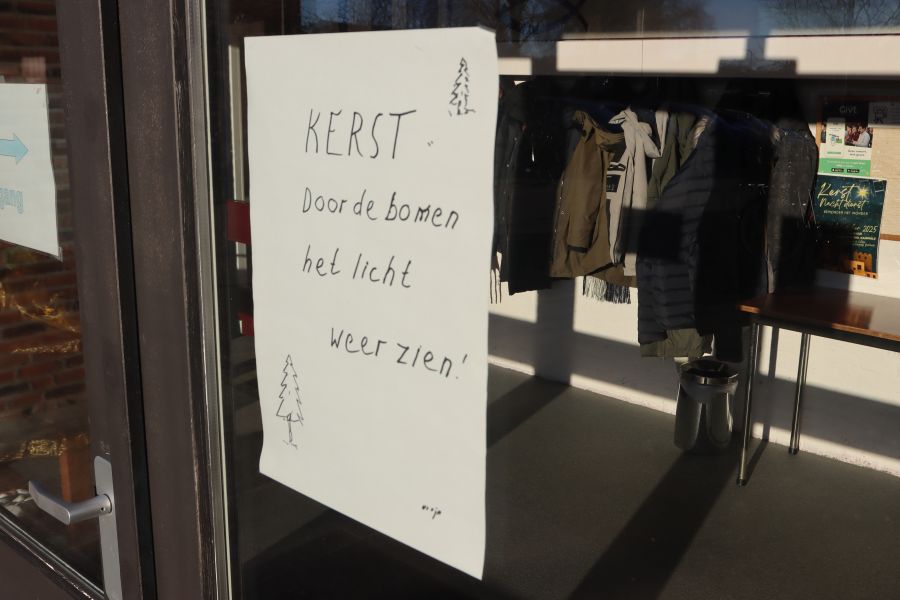 KERST
Door de bomen
het licht
weer zien!
gang
GIVT
Kerst
Nachtdienst
2025